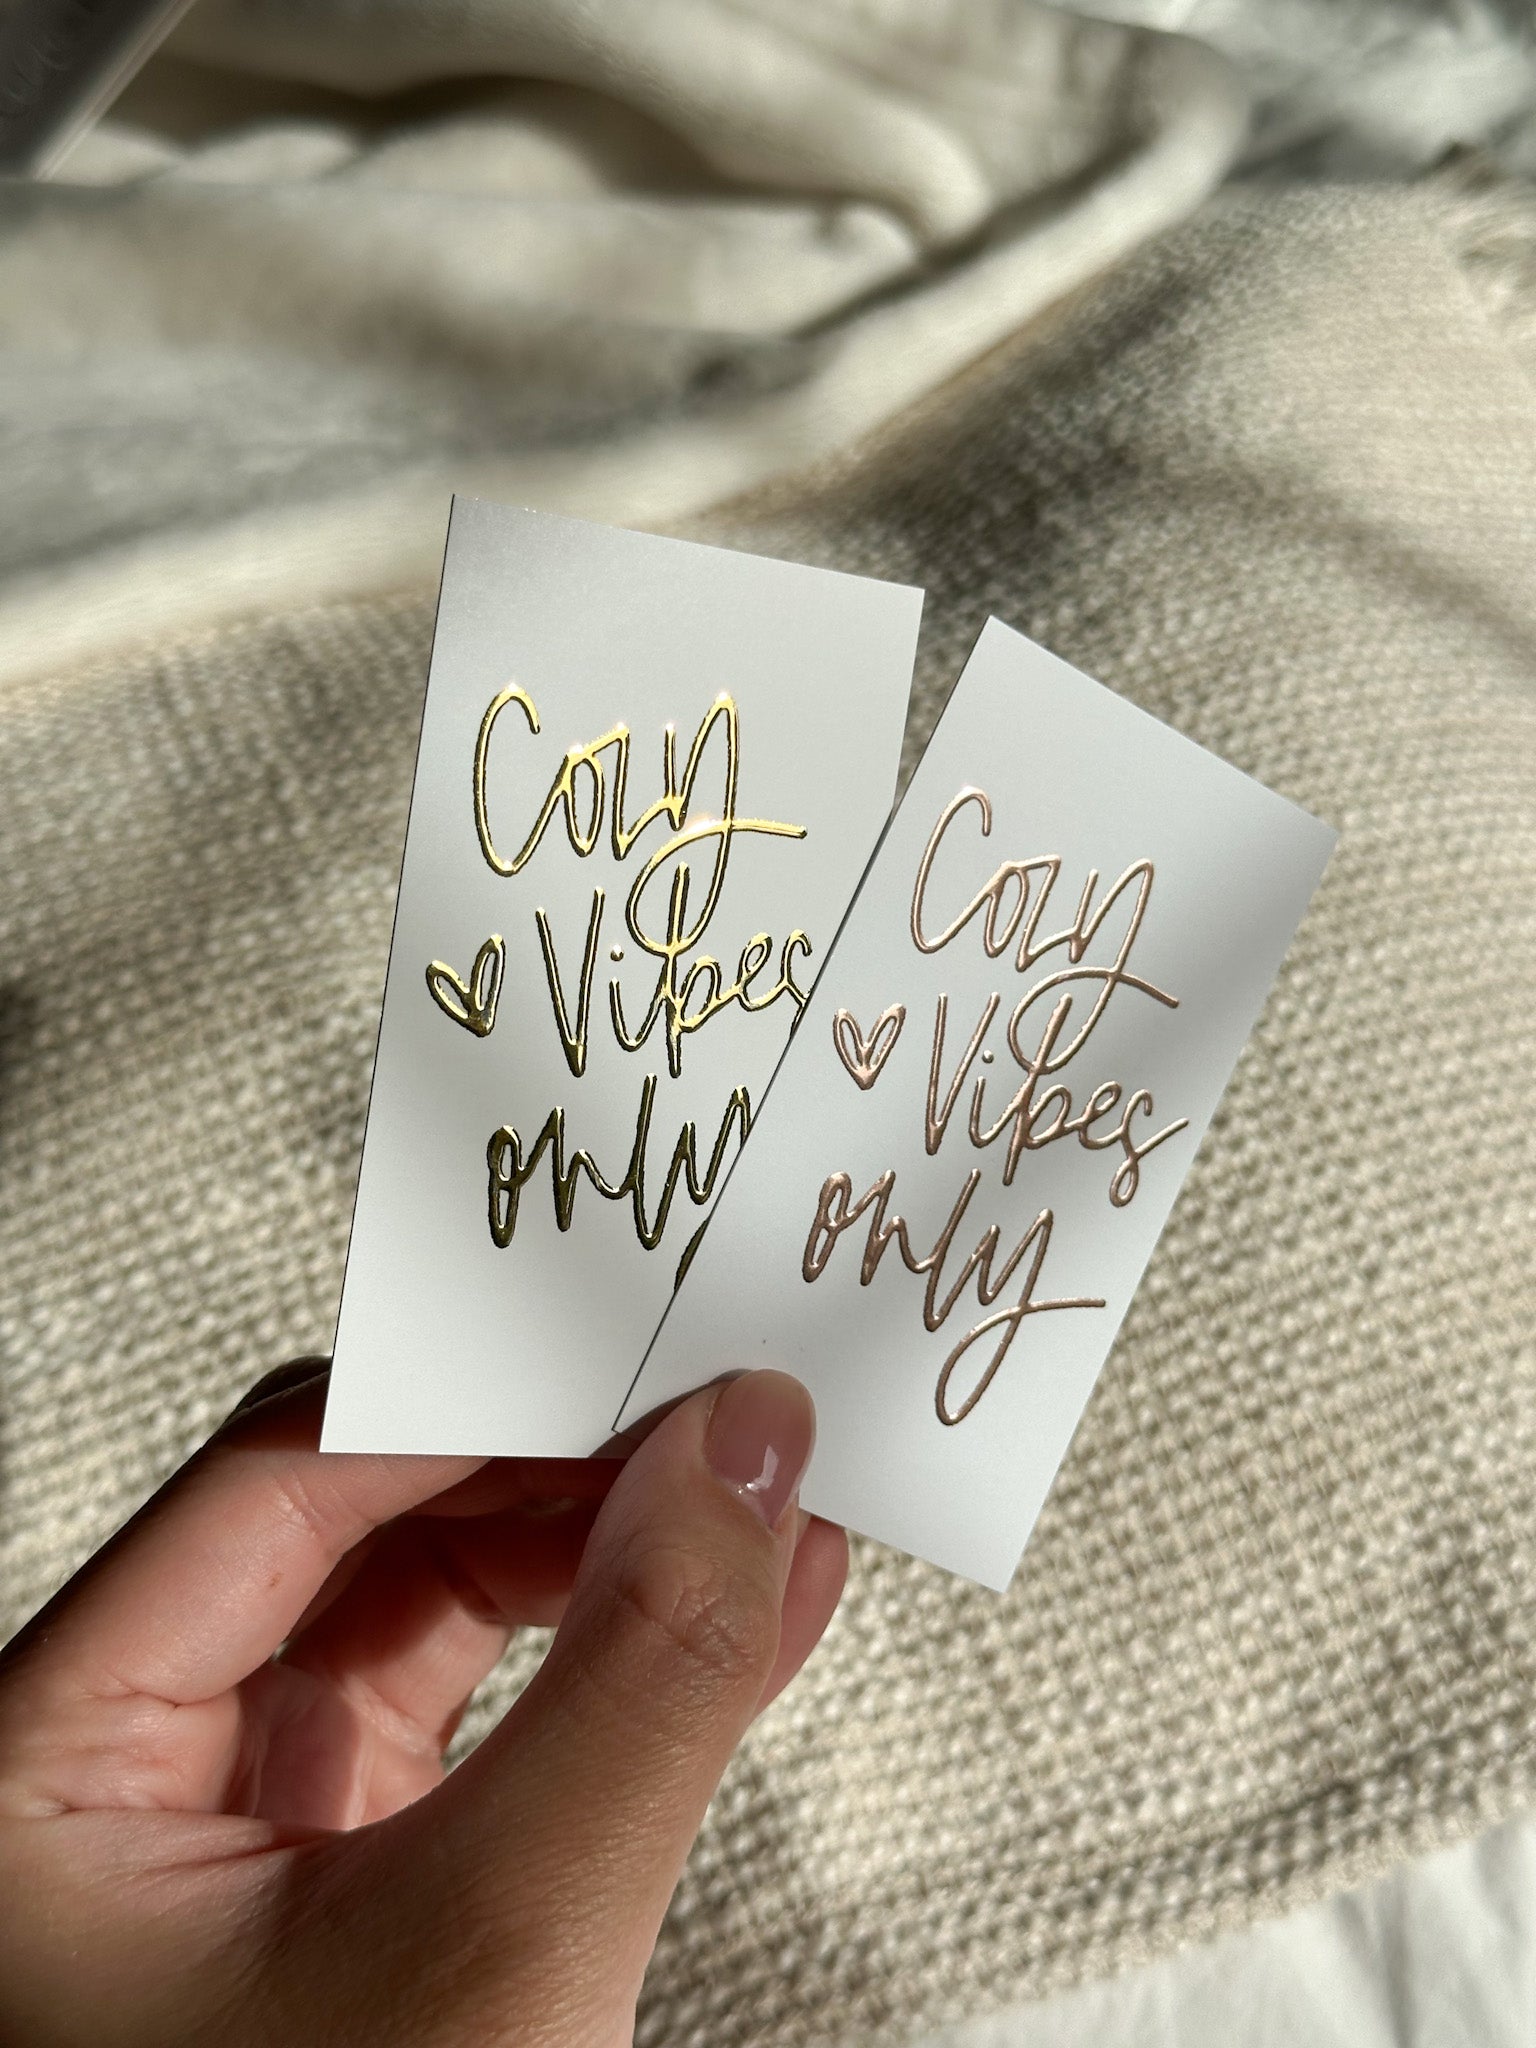 Cozy
♡ Vibes
only
Cozy
♡ Vibes
only